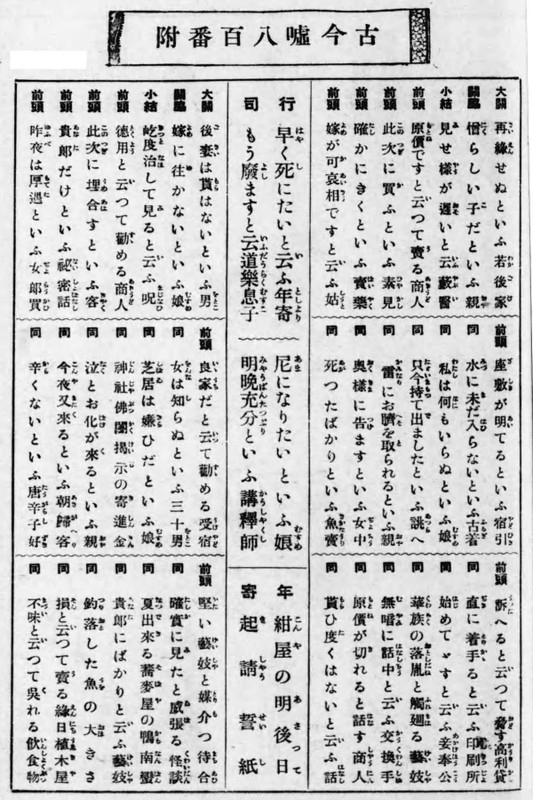 古今嘘八百番附
大關 再緣せぬといふ若後家
關脇 憎らしい子だといふ親
小結 見せ樣が遲いと云藪醫
前頭 原價ですと云つて賣る商人
前頭 此次に買ふといふ素見
前頭 確かにきくといふ賣藥
前頭 嫁が可哀相ですと云ふ姑
前頭 座敷が明てるといふ宿引
同 水に未だ入らないといふ古着
同 私は何もいらぬといふ娘
同 只今持て出ましたといふ誂へ
同 雷にお臍を取られるといふ親
同 奧樣に告ますといふ女中
同 死つたばかりといふ魚賣
前頭 訴へると云つて脅す高利貸
同 直に着手ると云ふ印刷所
同 始めてゞすと云ふ妾奉公
同 華族の落胤と觸廻る藝妓
同 無暗に話中と云ふ交換手
同 原價が切れると話す商人
同 貰ひ度くはないと云ふ話
行司
早く死にたいと云ふ年寄
もう廢ますと云道樂息子
尼になりたいといふ娘
明晚充分といふ講釋師
年寄
紺屋の明後日
起請誓紙
大關 後妻は貰はないといふ男
關脇 嫁に往かないといふ娘
小結 屹度治して見ると云ふ呪
前頭 德用と云つて勸める商人
前頭 此次に埋合すといふ客
前頭 貴郎だけといふ祕密話
前頭 昨夜は厚遇といふ女郎買
前頭 良家だと云て勸める受宿
同 女は知らぬといふ三十男
同 芝居は嫌ひだといふ娘
同 神社佛閣揭示の寄進金
同 泣とお化が來るといふ親
同 今夜又來るといふ朝歸客
同 辛くないといふ唐辛子好
前頭 堅い藝妓と媒介つ待合
同 確實に見たと威張る怪談
同 夏出來る蕎麥屋の鴨南蠻
同 貴郎にばかりと云ふ藝妓
同 釣落した魚の大きさ
同 損と云つて賣る緣日植木屋
同 不味と云つて吳れる飲食物